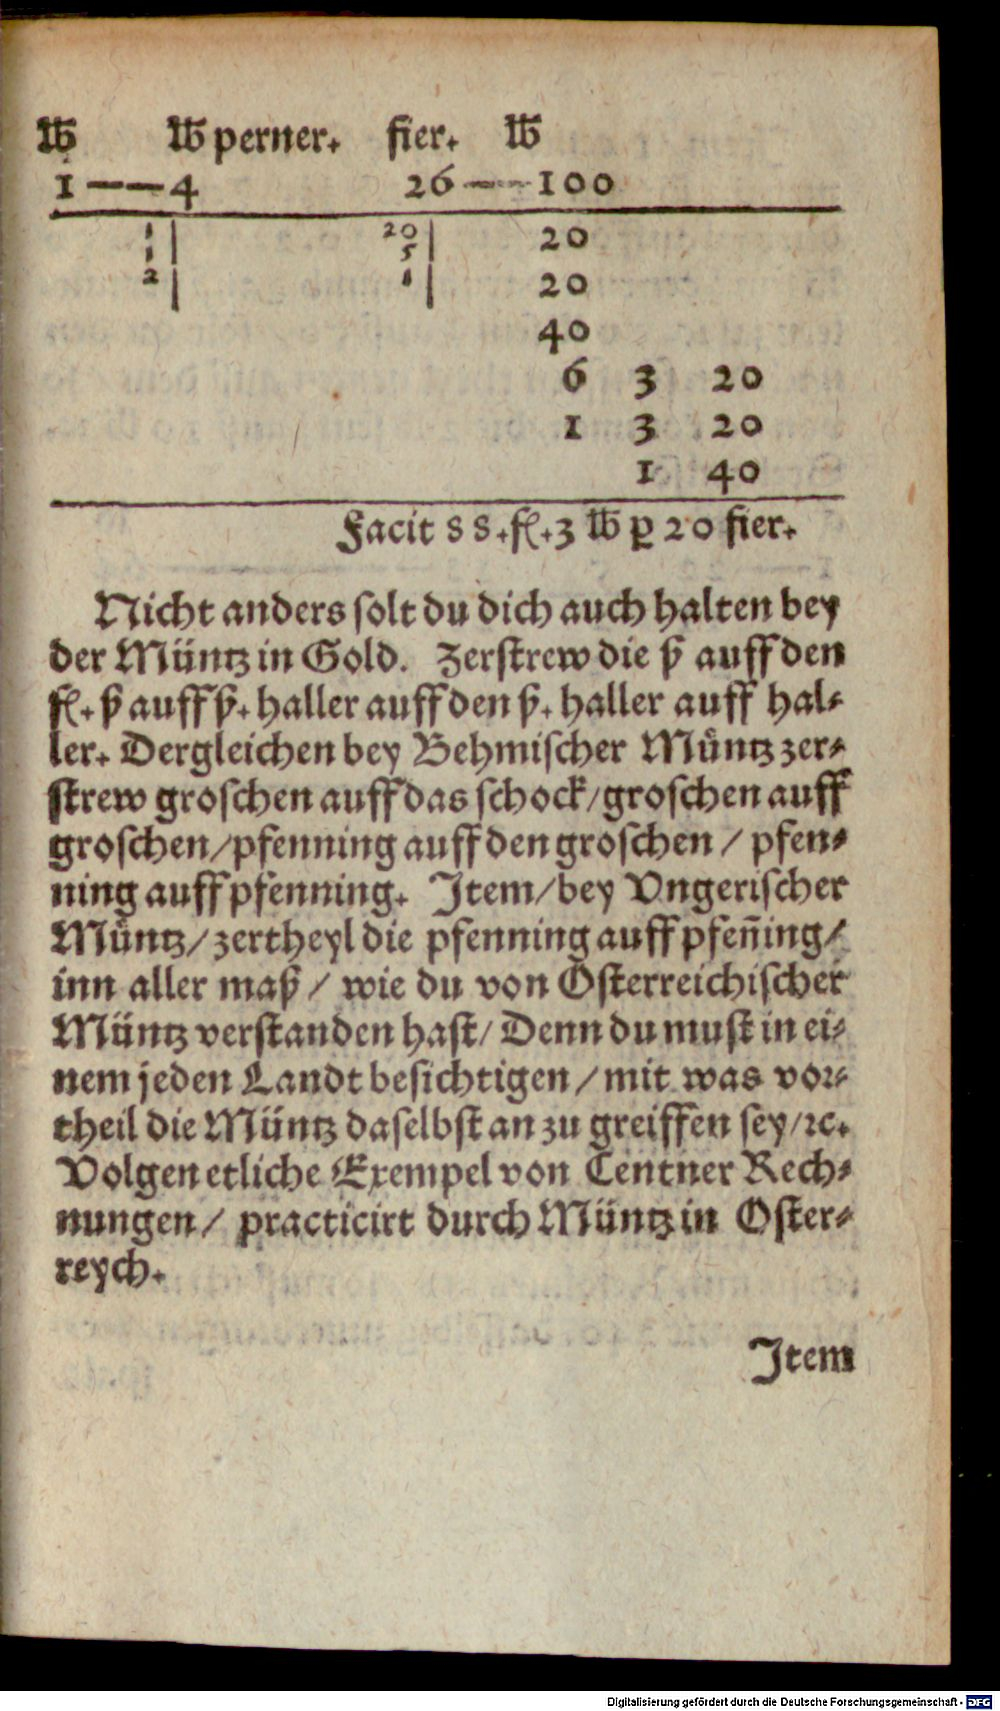 ℔ ℔ perner. fier. ℔
1 —— 4 26 —— 100
1 | 20 | 20
1 | 5 |
2 | 1 | 20
40
6 3 20
1 3 20
1 40
Facit 88. fl. 3 ℔ ꝑ 20 fier.
Nicht anders solt du dich auch halten bey
der Müntz in Gold. Zerstrew die ß auff den
fl. ß auff ß. haller auff den ß. haller auff hal-
ler. Dergleichen bey Behmischer Müntz zer-
strew groschen auff das schock/groschen auff
groschen/pfenning auff den groschen / pfen-
ning auff pfenning. Item/bey Vngerischer
Müntz/zertheyl die pfenning auff pfen̄ing/
inn aller maß / wie du von Osterreichischer
Müntz verstanden hast/ Denn du must in ei-
nem jeden Landt besichtigen /mit was vor-
theil die Müntz daselbst an zu greiffen sey/ꝛc.
Volgen etliche Exempel von Centner Rech-
nungen/ practicirt durch Müntz in Oster-
reych.
Item
Digitalisierung gefördert durch die Deutsche Forschungsgemeinschaft - DFG